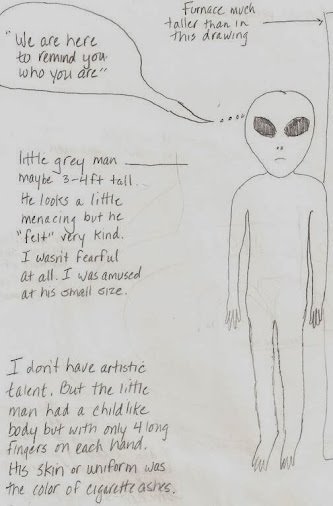 "We are here
to remind you
who you are"
Furnace much
taller than in
this drawing
little grey man
maybe 3-4ft tall.
He looks a little
menacing but he
"felt" very kind.
I wasn't fearful
at all. I was amused
at his small size.
I don't have artistic
talent. But the little
man had a childlike
body but with only 4 long
fingers on each hand.
His skin or uniform was
the color of cigarette ashes.